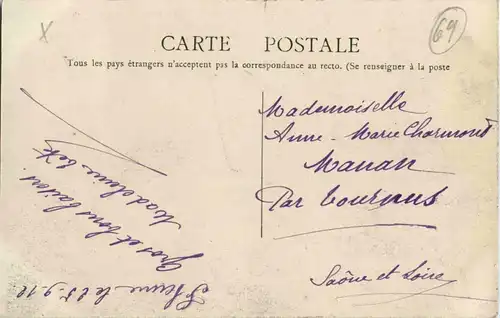 69
CARTE POSTALE
Tous les pays étrangers n'acceptent pas la correspondance au recto. (Se renseigner à la poste
Mademoiselle
Anne-Marie Charmont
Manan
Par Tournus
Saône et Loire
le 25-9-12
Gros et bons baisers
Madeleine